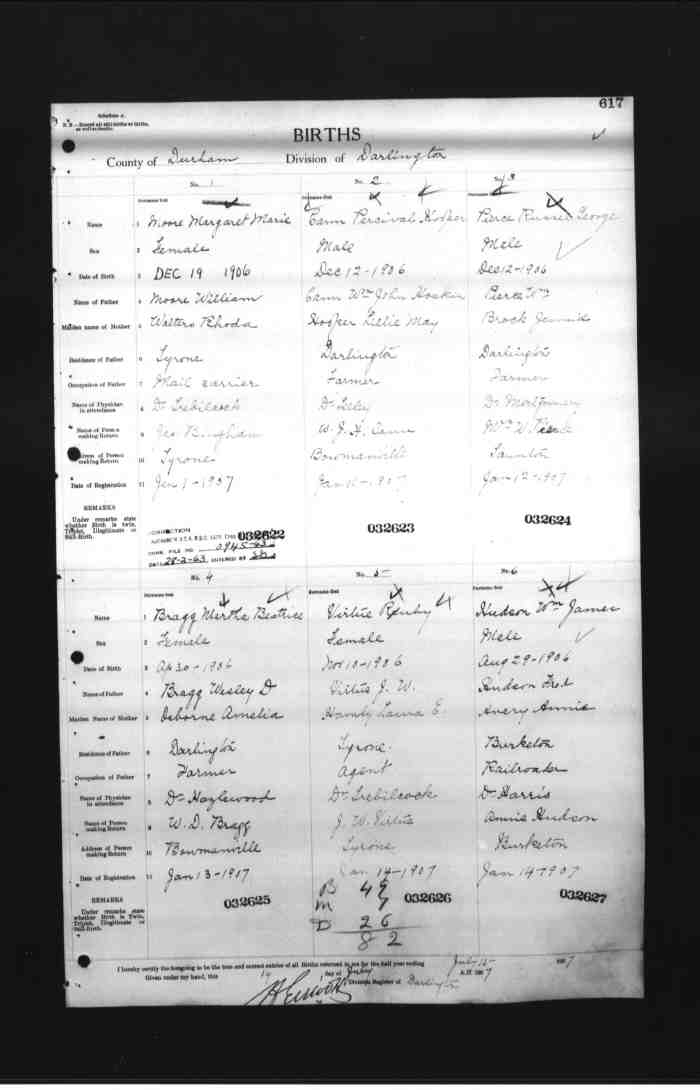 617
Schedule A.
N. B.—Record all still births as Births, as well as deaths.
BIRTHS
County of Durham Division of Darlington
No. 1 No. 2 No. 3
Surname first Surname first Surname first
Name 1 Moore Margaret Marie Cann Percival Hooper Pierce Russel George
Sex 2 Female Male Male
Date of Birth 3 DEC 19 1906 Dec 12-1906 Dec 12-1906
Name of Father 4 Moore William Cann Wm John Hoskin Pierce Wm
Maiden name of Mother 5 Walters Rhoda Hooper Lillie May Brock Jennie
Residence of Father 6 Tyrone Darlington Darlington
Occupation of Father 7 Mail carrier Farmer Farmer
Name of Physician in attendance 8 Dr Trebilcock Dr Tilley Dr Montgomery
Name of Person making Return 9 Geo Bingham W. J. H. Cann Mrs W. Pierce
Address of Person making Return 10 Tyrone Bowmanville Taunton
Date of Registration 11 Jan 1-1907 Jan 11-1907 Jan-12-1907
REMARKS
Under remarks state whether Birth is twin, Triplet, Illegitimate or Still-Birth.
CORRECTION 032622 032623 032624
FILE NO 0945-63
DATE 28-2-63 ENTERED BY
No. 4 No. 5 No. 6
Surname first Surname first Surname first
Name 1 Bragg Mertha Beatrice Virtue Ruby Hudson Wm James
Sex 2 Female Female Male
Date of Birth 3 Ap 30-1906 Nov 10-1906 Aug 29-1906
Name of Father 4 Bragg Wesley D Virtue J. W. Hudson Fred
Maiden Name of Mother 5 Osborne Amelia Laura E. Avery Annie
Residence of Father 6 Darlington Tyrone Burketon
Occupation of Father 7 Farmer Agent Railroader
Name of Physician in attendance 8 Dr Hazlewood Dr Trebilcock Dr Harris
Name of Person making Return 9 W. D. Bragg J. W. Virtue Annie Hudson
Address of Person making Return 10 Bowmanville Tyrone Burketon
Date of Registration 11 Jan 13-1907 Jan 14-1907 Jan 14-1907
REMARKS
Under remarks state whether Birth is Twin, Triplet, Illegitimate or Still-Birth.
032625 032626 032627
B 49
M 7
D 26
82
I hereby certify the foregoing to be the true and correct entries of all Births returned to me for the half year ending July 15 1907
Given under my hand, this 14 day of July A.D. 1907
Division Registrar of Darlington